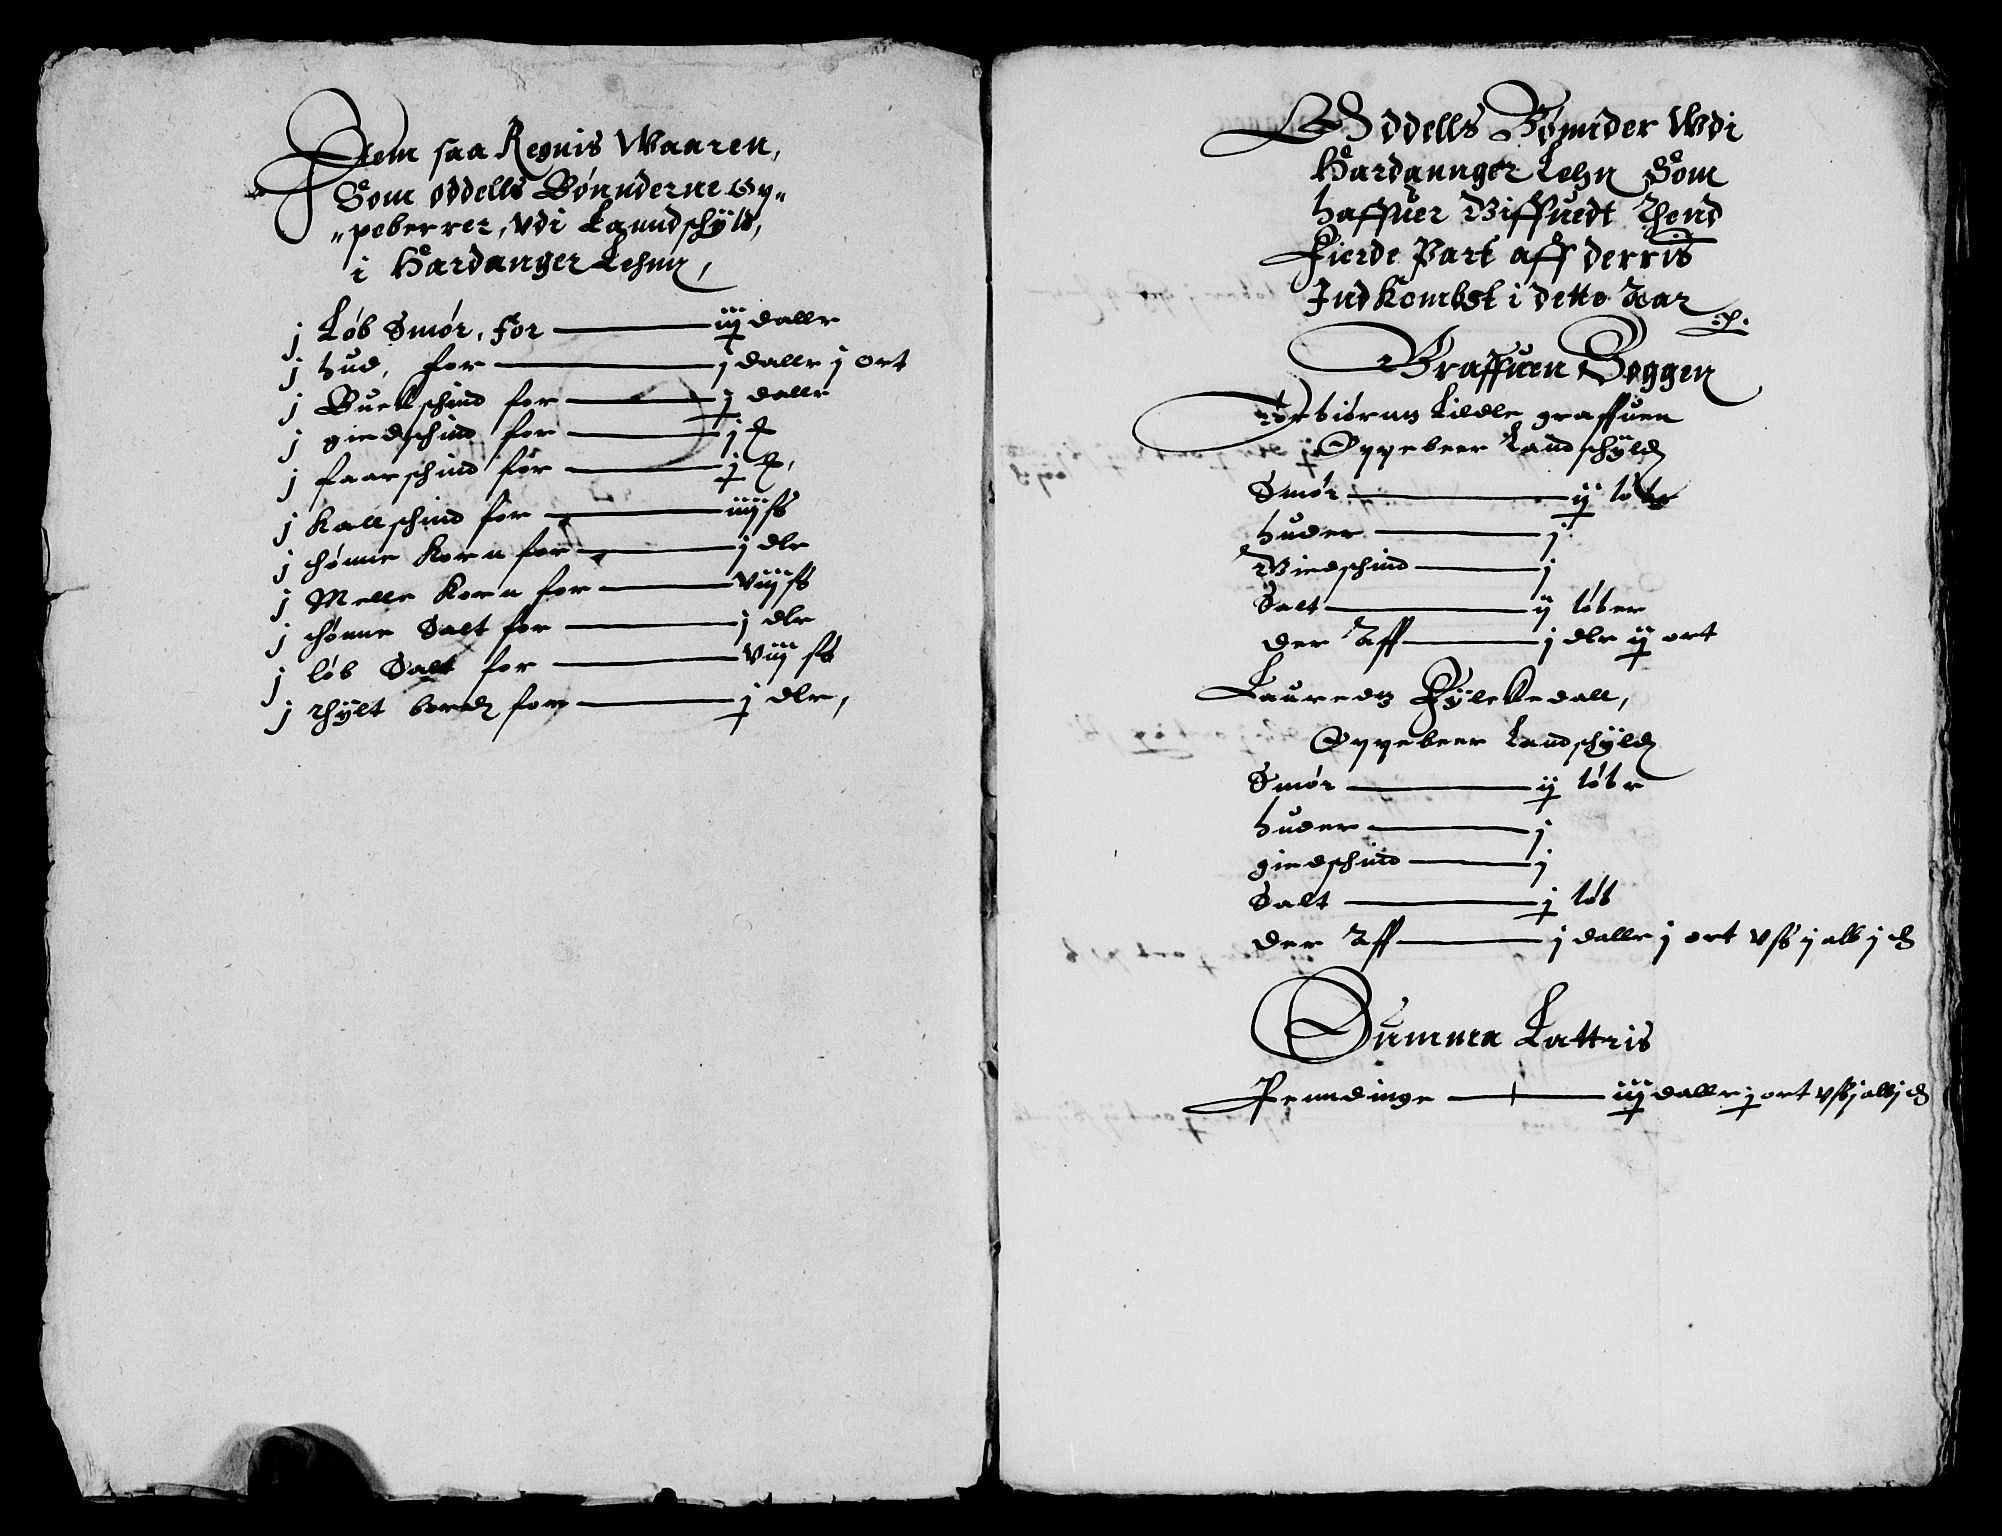 Item saa Regnis Waaren,
Som oddells Bønnderne Op„
„peberrer, Vdi Lanndschÿld,
i Hardanger Lehnn,
j Løb Smør, for — iij daller
j hud, for — j daller j ort
j Buckschind for — j daller
j giedschind for — j
j faarschind for — j
j Kallschind for — iiij ſs
j thønne Korn for — j dlr
j Melle Korn for — viij ſs
j thønne Salt for — j dlr
j løb Salt for — viij ſs
j thÿlt bordz for — j dlr,
Oddells Bønnder Wdi
Hardannger Lehn Som
haffuer Giffuedt Thend
Fierde Part aff derris
IndKombst i dette Aar
Graffuen Soggen
Torbiørnn Lildle graffuen
Oppebeer Landschÿldz
Smør — ij løber
huder — j
Giedschind — j
Salt — ij løber
der Aff — j dlr ij ort
Lauredz Fÿlckedall,
Oppebeer Landschÿldz
Smør — ij løber
huder — j
giedschind — j
Salt — j løb
der Aff — j daller j ort v ſs j alb j d
Summa Lattris
Penndinge — iij daller j ort v ſs j alb j d